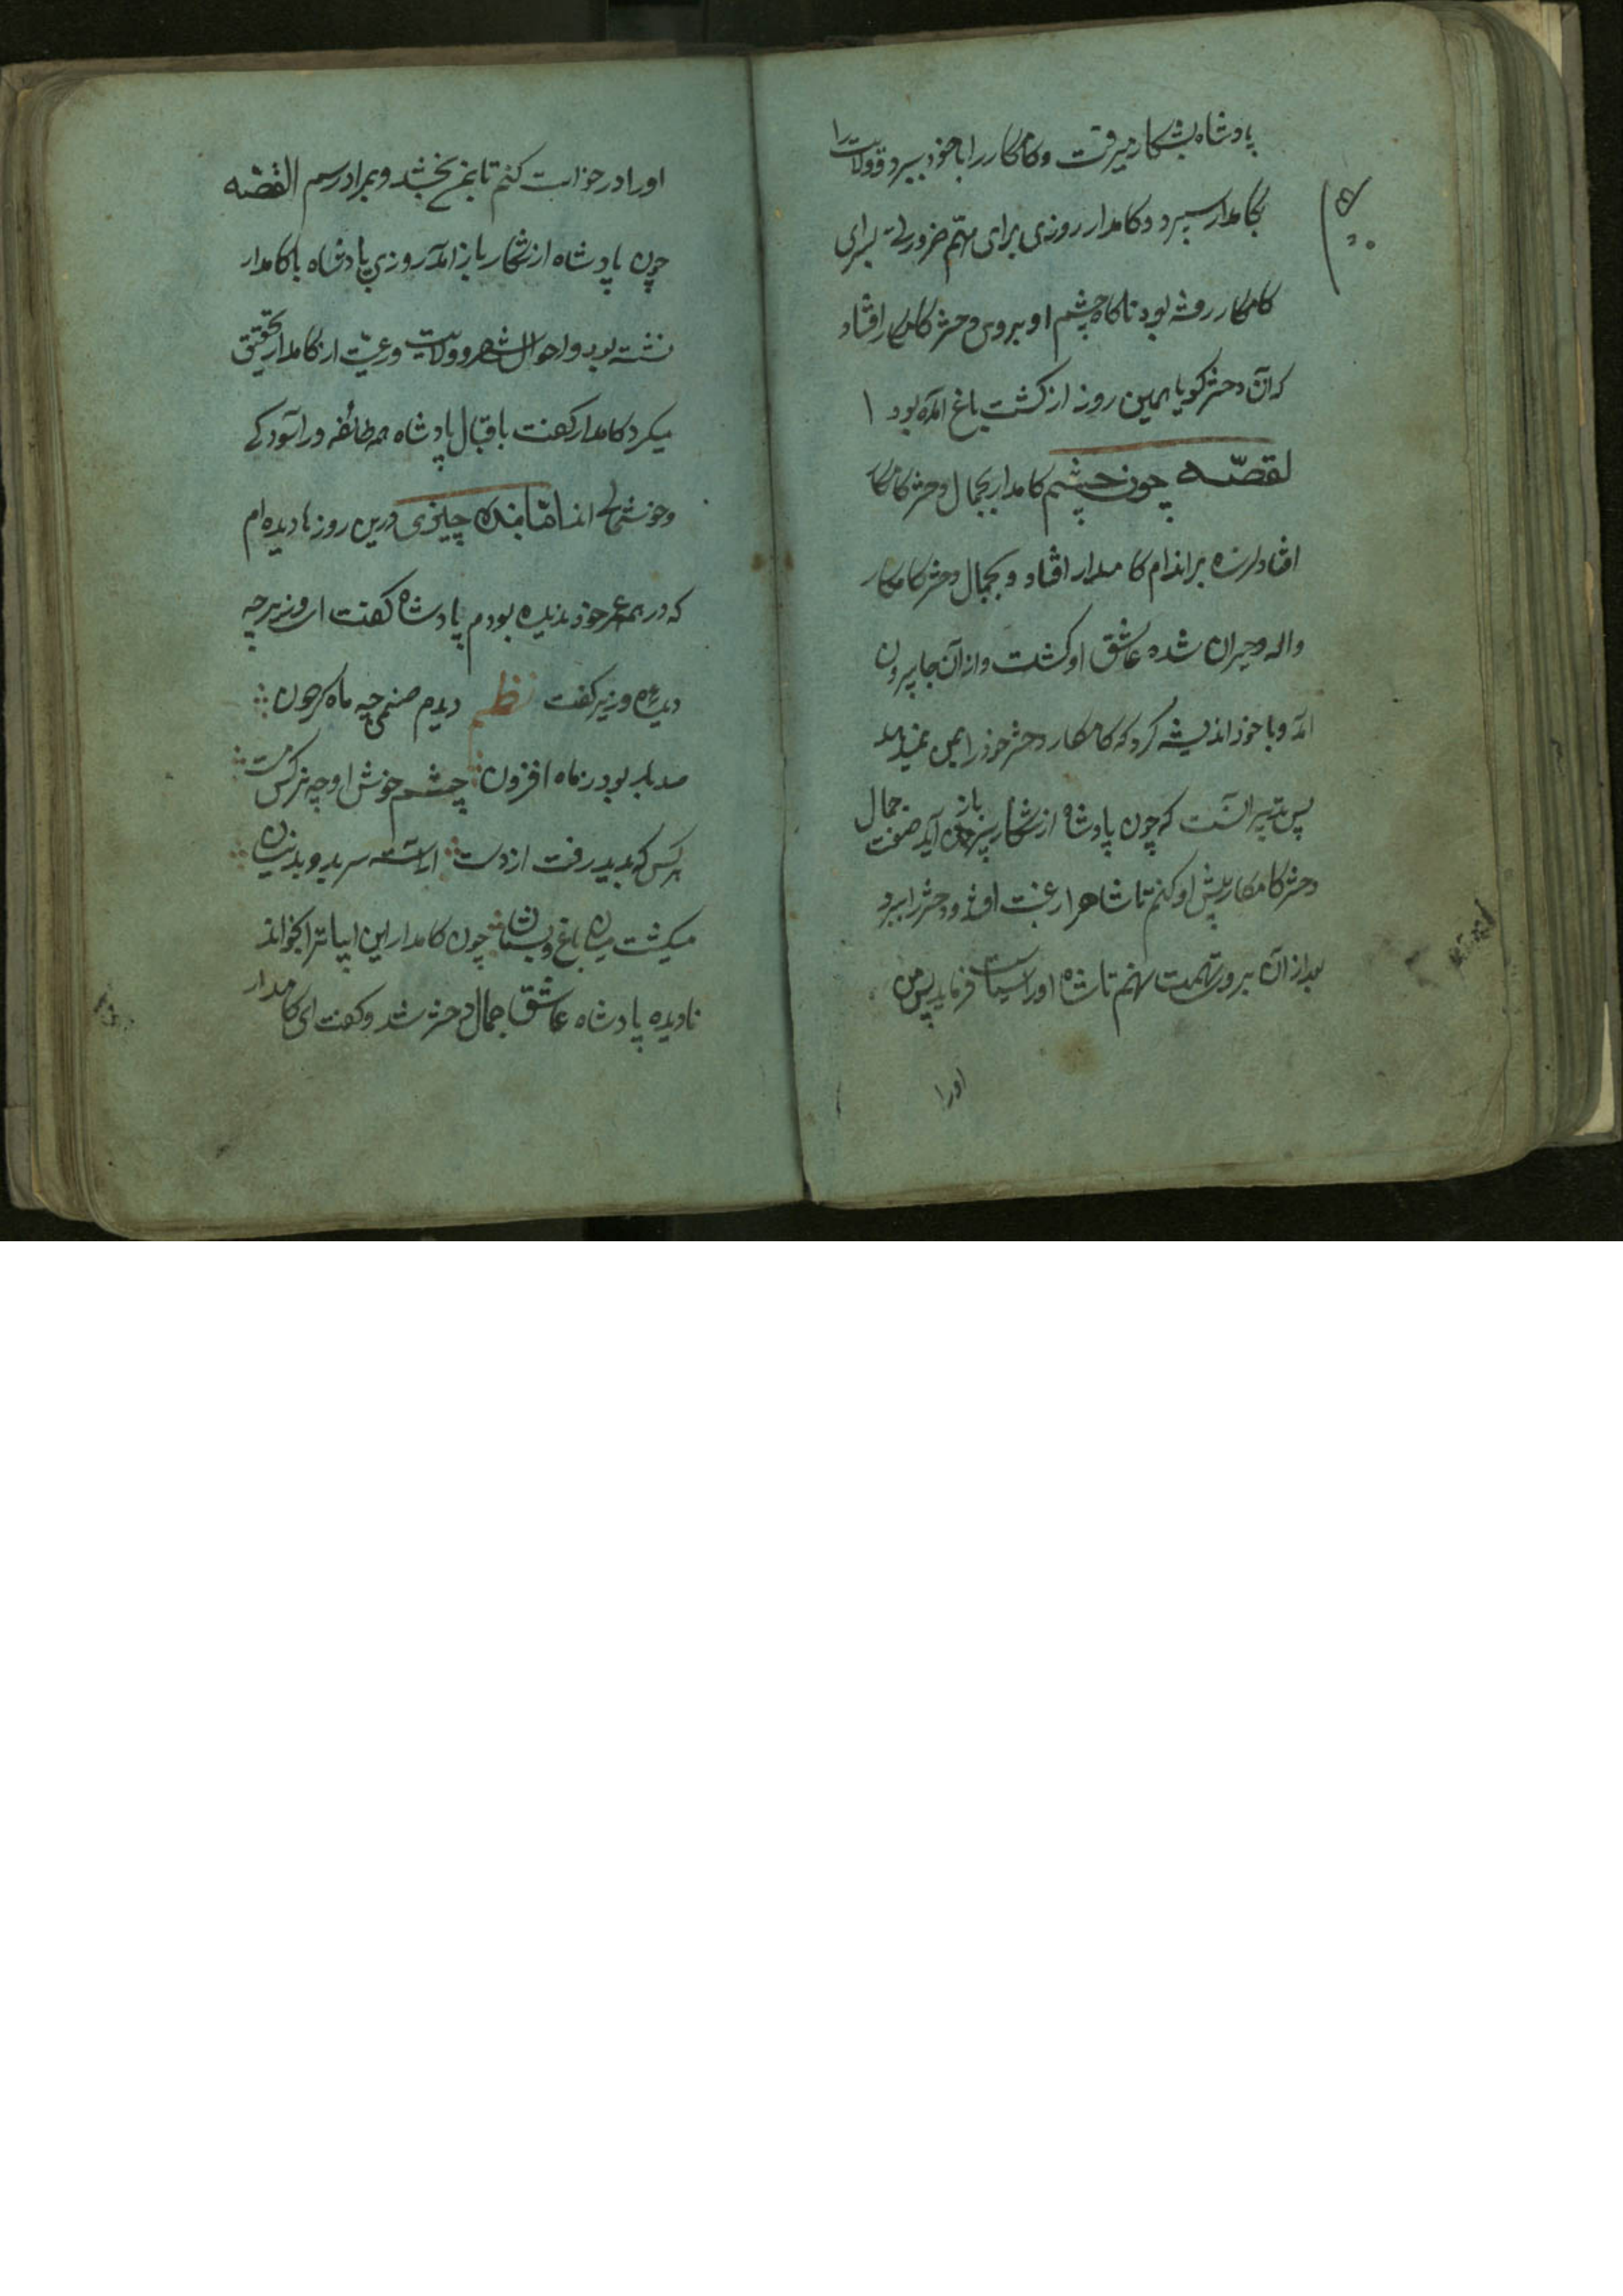 پادشاه بشکار میرفت و کامکار را با خود ببرد و ولایت را
بکامدار سپرد و کامدار روزی برای مهم ضروری بسرای
کامکار رفته بود ناکاه چشم او بر وی دختر کامکار افتاد
که آن دختر کویا همین روز از کشت باغ آمده بود
لقصّه چون چشم کامدار بجمال دختر کامکا
افتاد لرزه بر اندام کامدار افتاد و بجمال دختر کامکار
واله و حیران شده عاشق او کشت و از آن جا بیرون
آمد و با خود اندیشه کرد که کامکار دختر خود را بمن نمیدهد
پس تدبیر آنست که چون پادشاه از شکار باز آید صفت جمال
دختر کامکار پیش او کنم تا شاه را رغبت افتد و دختر را ببرد
بعد از آن برو تهمت نهم تا شاه او را سیاست فرماید پس من
اورا
اورا درخواست کنم تا بمن بخشد و بمراد رسم القصّه
چون پادشاه از شکار باز آمد روزی پادشاه با کامدار
نشسته بود و احوال شهر و ولایت و رعیّت از کامدار تحقیق
میکرد کامدار کفت باقبال پادشاه همه طائفه در آسودکی
و خوشحالی اند امّا بنده چیزی درین روزها دیده ام
که در همه عمر خود ندیده بودم پادشاه کفت ای وزیر چه
دیدهٔ وزیر کفت نظم دیدم صنمی چه ماه کردون
صد بار بود ز ماه افزون چشم خوش او چه نرکس مست
هر کس که بدید رفت از دست آراسته سر بدو بدنیسان
میکشت میان باغ و بستان چون کامدار این ابیات را بخواند
نادیده پادشاه عاشق جمال دختر شد و کفت ای کامدار